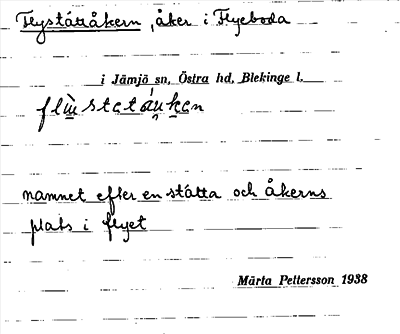 Flyståttåkern, åker i Flyeboda
i Jämjö sn, Östra hd, Blekinge l.
namnet efter en ståtta och åkerns
plats i flyet
Märta Pettersson 1938